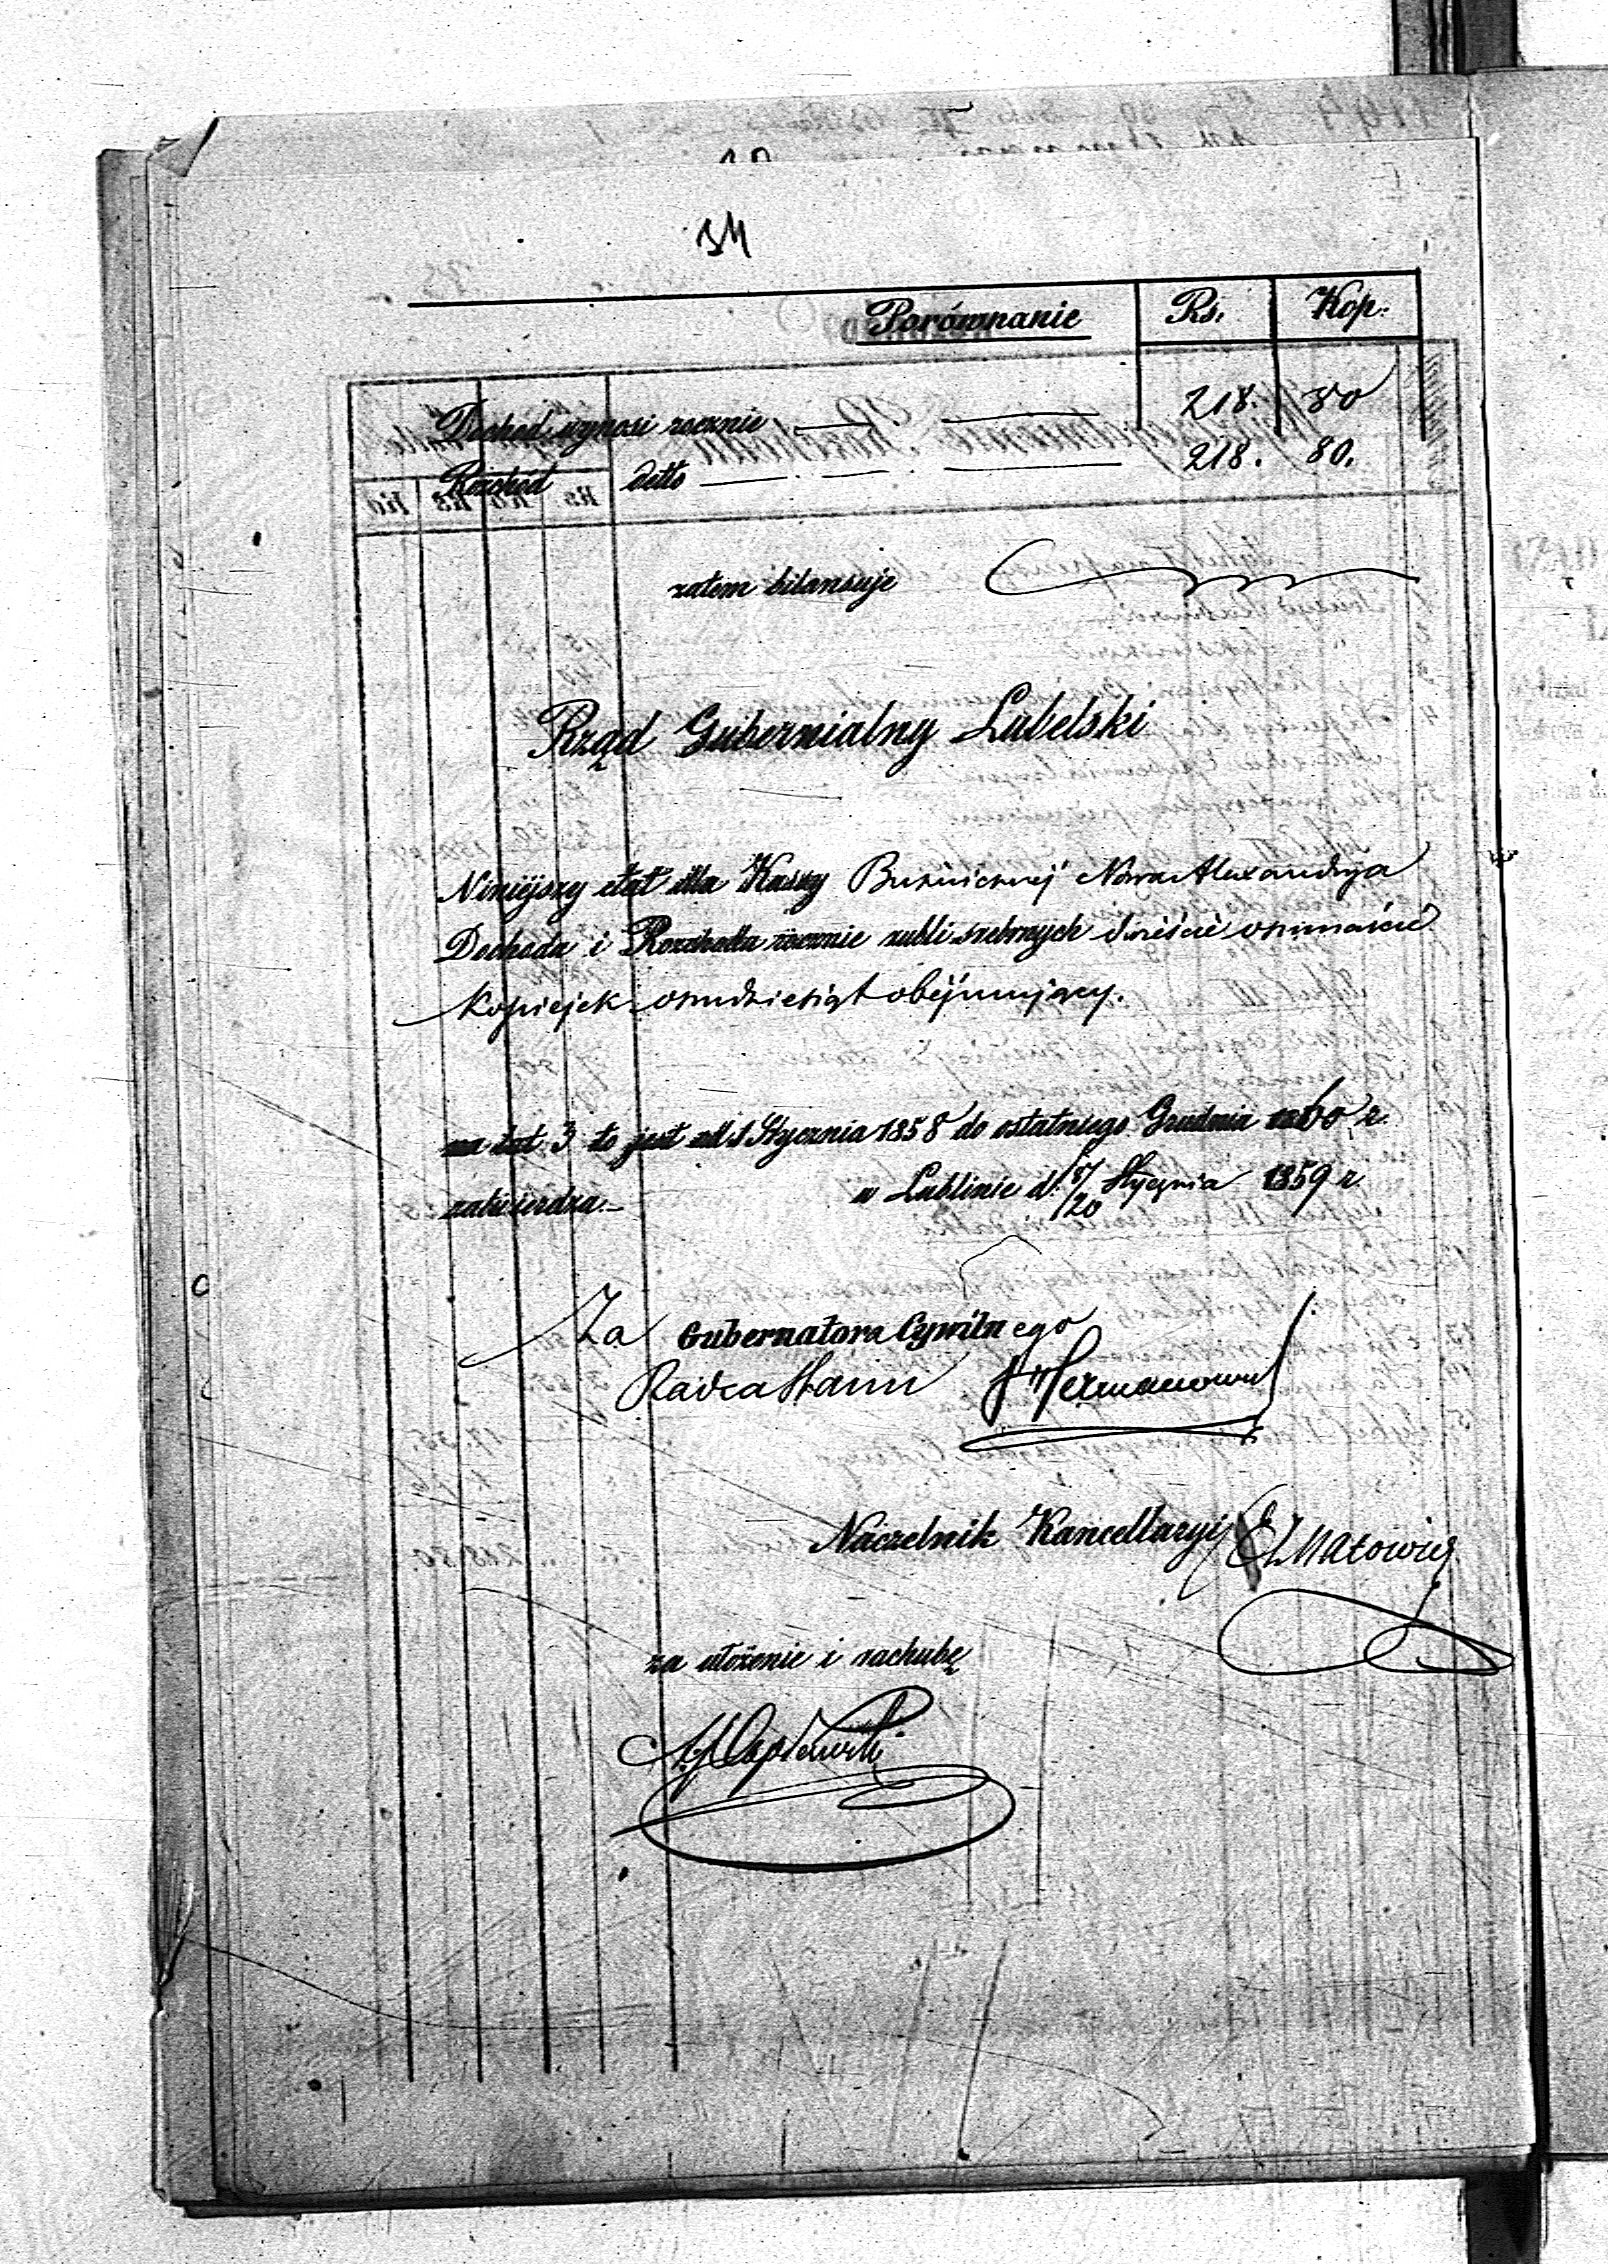 34
Porównanie Rs. Kop.
Dochód wynosi rocznie 218. 80
Rozchód detto 218. 80.
zatem bilansuje
Rząd Gubernialny Lubelski
Niniéjszy etat dla Kassy Bużnicznéj Nowa Alexandryja
Dochodu i Rozchodu rocznie rubli srebrnych dwieście ośmnaście
Kopiejek ośmdziesiąt obéjmujący.
na lat 3 to jest od 1 Stycznia 1858 do ostatniego Grudnia 1860 r.
zatwierdza.— w Lublinie d. 8/20 Stycznia 1859 r.
Za Gubernatora Cywilnego
Radca Stanu
Naczelnik Kancellaryi
za ułożenie i rachubę